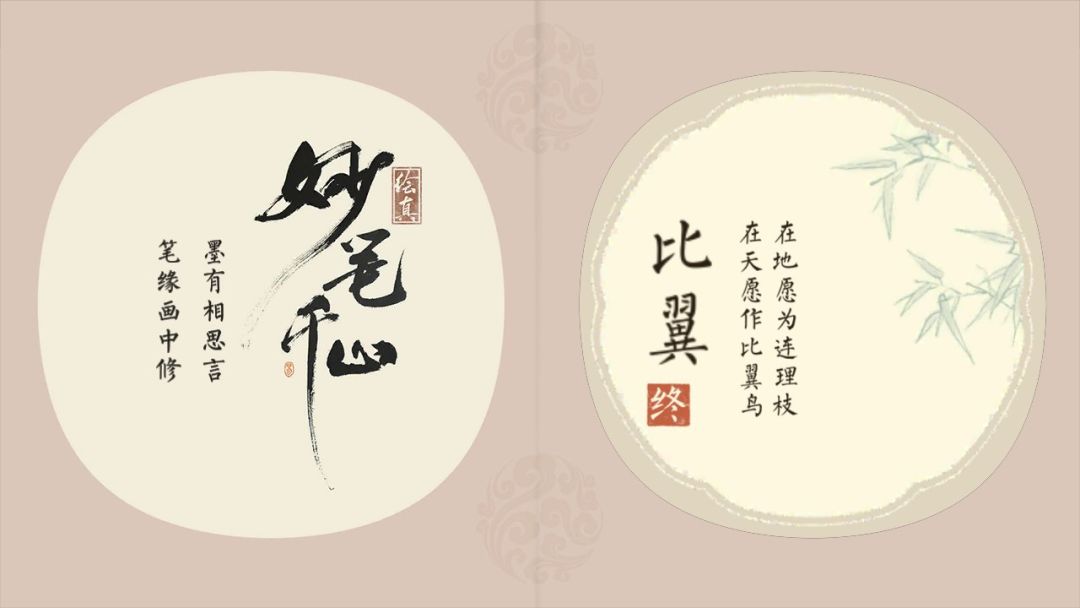 妙笔千山
绘真
墨有相思言
笔缘画中修
比翼
终
在地愿为连理枝
在天愿作比翼鸟